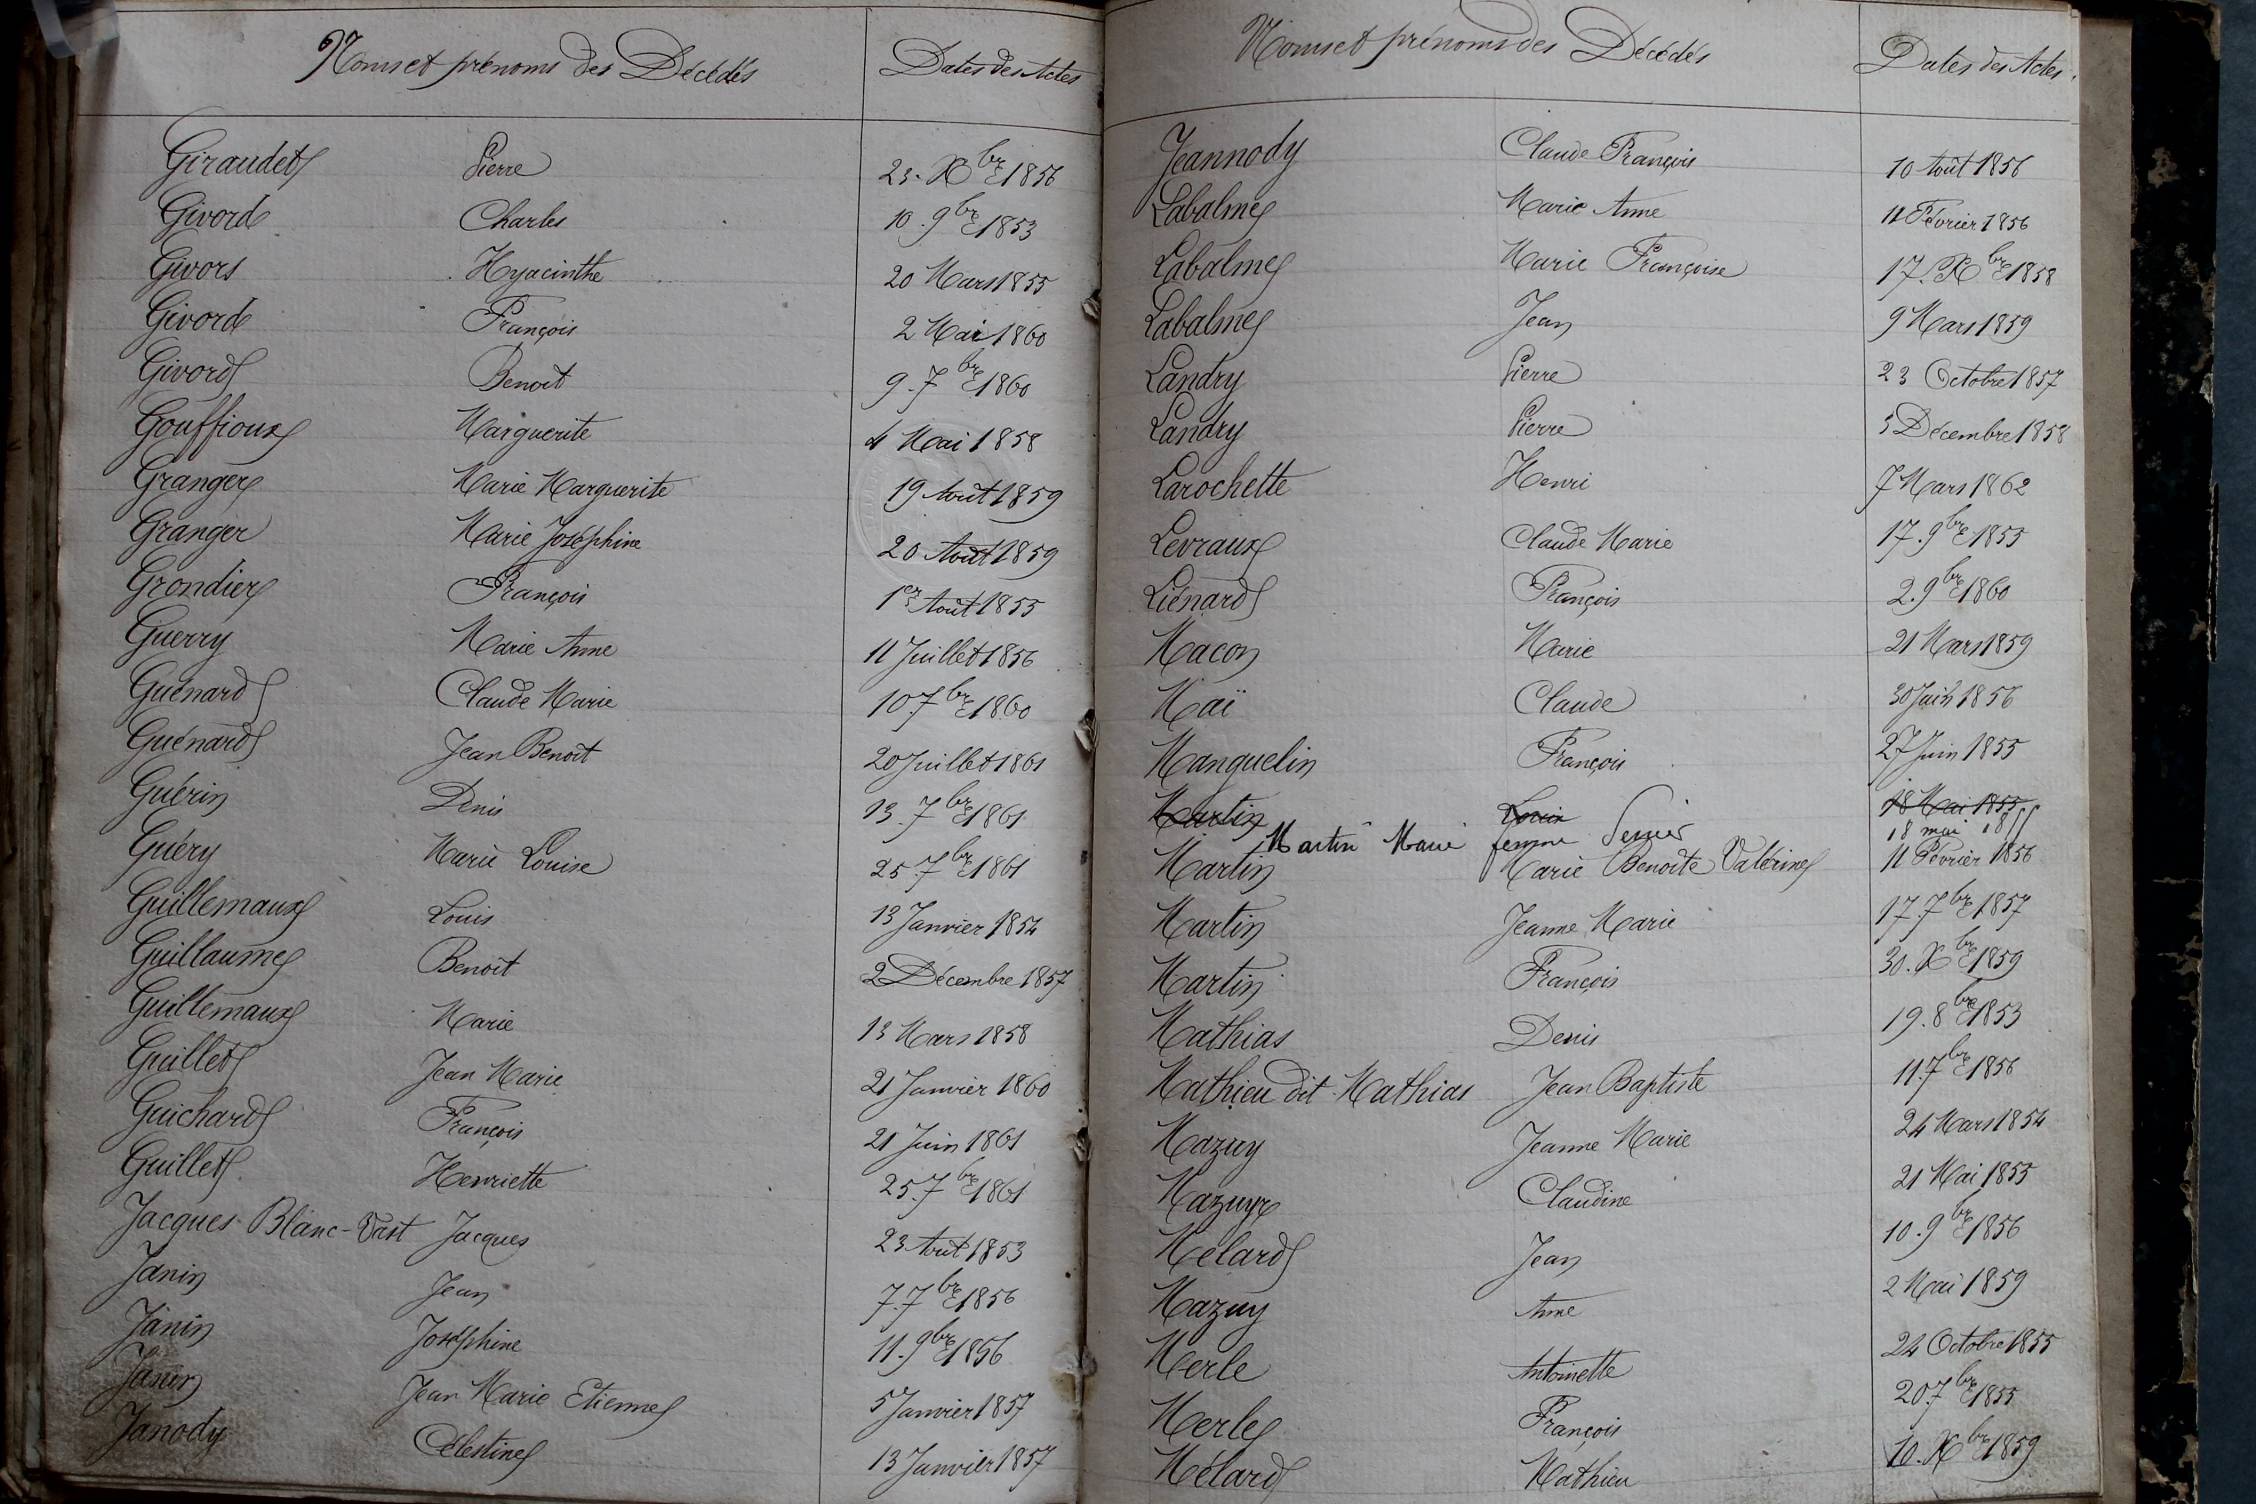 Noms et prénoms des Décédés Dates des Actes
Giraudet Pierre 23. Xbre 1856
Givord Charles 10. 9bre 1853
Givors Hyacinthe 20 Mars 1855
Givord François 2 Mai 1860
Givord Benoit 9. 7bre 1860
Gouffioux Marguerite 4 Mai 1858
Granger Marie Marguerite 19 Août 1859
Granger Marie Joséphine 20 Août 1859
Grondier François 1er Août 1855
Guerry Marie Anne 11 Juillet 1856
Guénard Claude Marie 10. 7bre 1860
Guénard Jean Benoit 20 Juillet 1861
Guérin Denis 13. 7bre 1861
Guéry Marie Louise 25 7bre 1861
Guillemaux Louis 13 Janvier 1854
Guillaume Benoit 2 Décembre 1857
Guillemaux Marie 13 Mars 1858
Guillet Jean Marie 21 Janvier 1860
Guichard François 21 Juin 1861
Guillet Henriette 25. 7bre 1861
Jacques Blanc-Vast Jacques 23 Août 1853
Janin Jean 7. 7bre 1856
Janin Joséphine 11. 9bre 1856
Janin Jean Marie Etienne 5 Janvier 1857
Janody Célestine 13 Janvier 1857
Noms et prénoms des Décédés Dates des Actes.
Jeannody Claude François 10 Août 1856
Labalme Marie Anne 11 Février 1856
Labalme Marie Françoise 17. Xbre 1858
Labalme Jean 9 Mars 1859
Landry Pierre 23 Octobre 1857
Landry Pierre 5 Décembre 1858
Larochette Henri 7 Mars 1862
Levraux Claude Marie 17. 9bre 1855
Liénard François 2. 9bre 1860
Macon Marie 21 Mars 1859
Maï Claude 30 Juin 1856
Manguelin François 27 Juin 1855
Martin Louis 18 Mai 1855
Martin Marie femme 18 mai 1855
Martin Marie Benoîte Valérine 11 Février 1856
Martin Jeanne Marie 17 7bre 1857
Martin François 30. Xbre 1859
Mathias Denis 19. 8bre 1853
Mathieu dit Mathias Jean Baptiste 11. 7bre 1856
Mazuy Jeanne Marie 24 Mars 1854
Mazuyr Claudine 21 Mai 1855
Mélard Jean 10. 9bre 1856
Mazuy Anne 2 Mai 1859
Merle Antoinette 24 Octobre 1855
Merle François 20. 7bre 1855
Mélard Mathieu 10. Xbre 1859